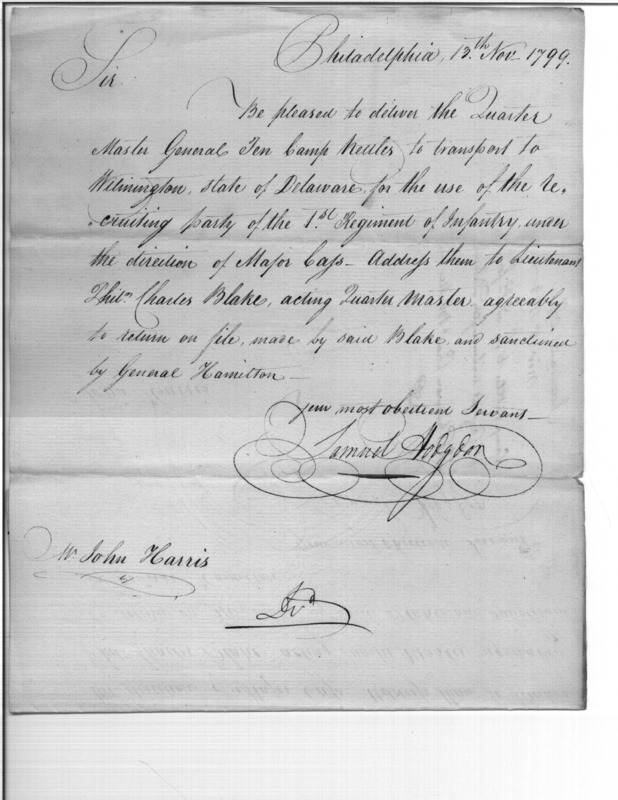 Philadelphia, 13th Nov 1799.
Sir
Be pleased to deliver the Quarter
Master General Ten Camp Kettles to transport to
Wilmington, state of Delaware, for the use of the re-
cruiting party of the 1st Regiment of Infantry, under
the direction of Major Cass— Address them to Lieutenant
Charles Blake, acting Quarter Master agreeably
to return on file, made by said Blake, and sanctioned
by General Hamilton—
your most obedient Servant—
Samuel Hodgdon
Mr John Harris